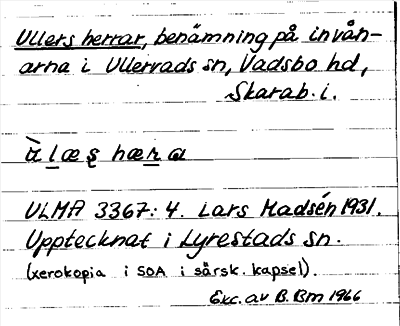 Ullers herrar, benämning på invån-
arna i Ullervads sn, Vadsbo hd,
Skarab. i.
ὰlæs hæra
ULMA 3367: 4. Lars Madsén 1931.
Upptecknat i Lyrestads sn.
(xerokopia i SOA i särsk. kapsel).
Exc. av B. Bm 1966